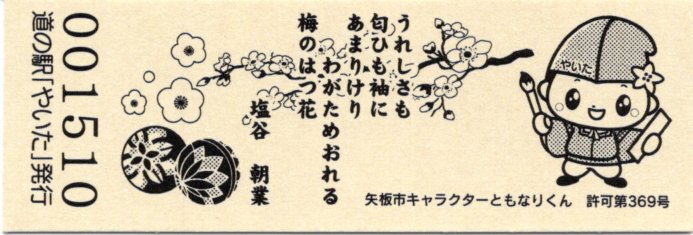 うれしさも
匂ひも袖に
あまりけり
わがためおれる
梅のはつ花
塩谷 朝業
やいた
矢板市キャラクターともなりくん 許可第369号
001510
道の駅「やいた」発行